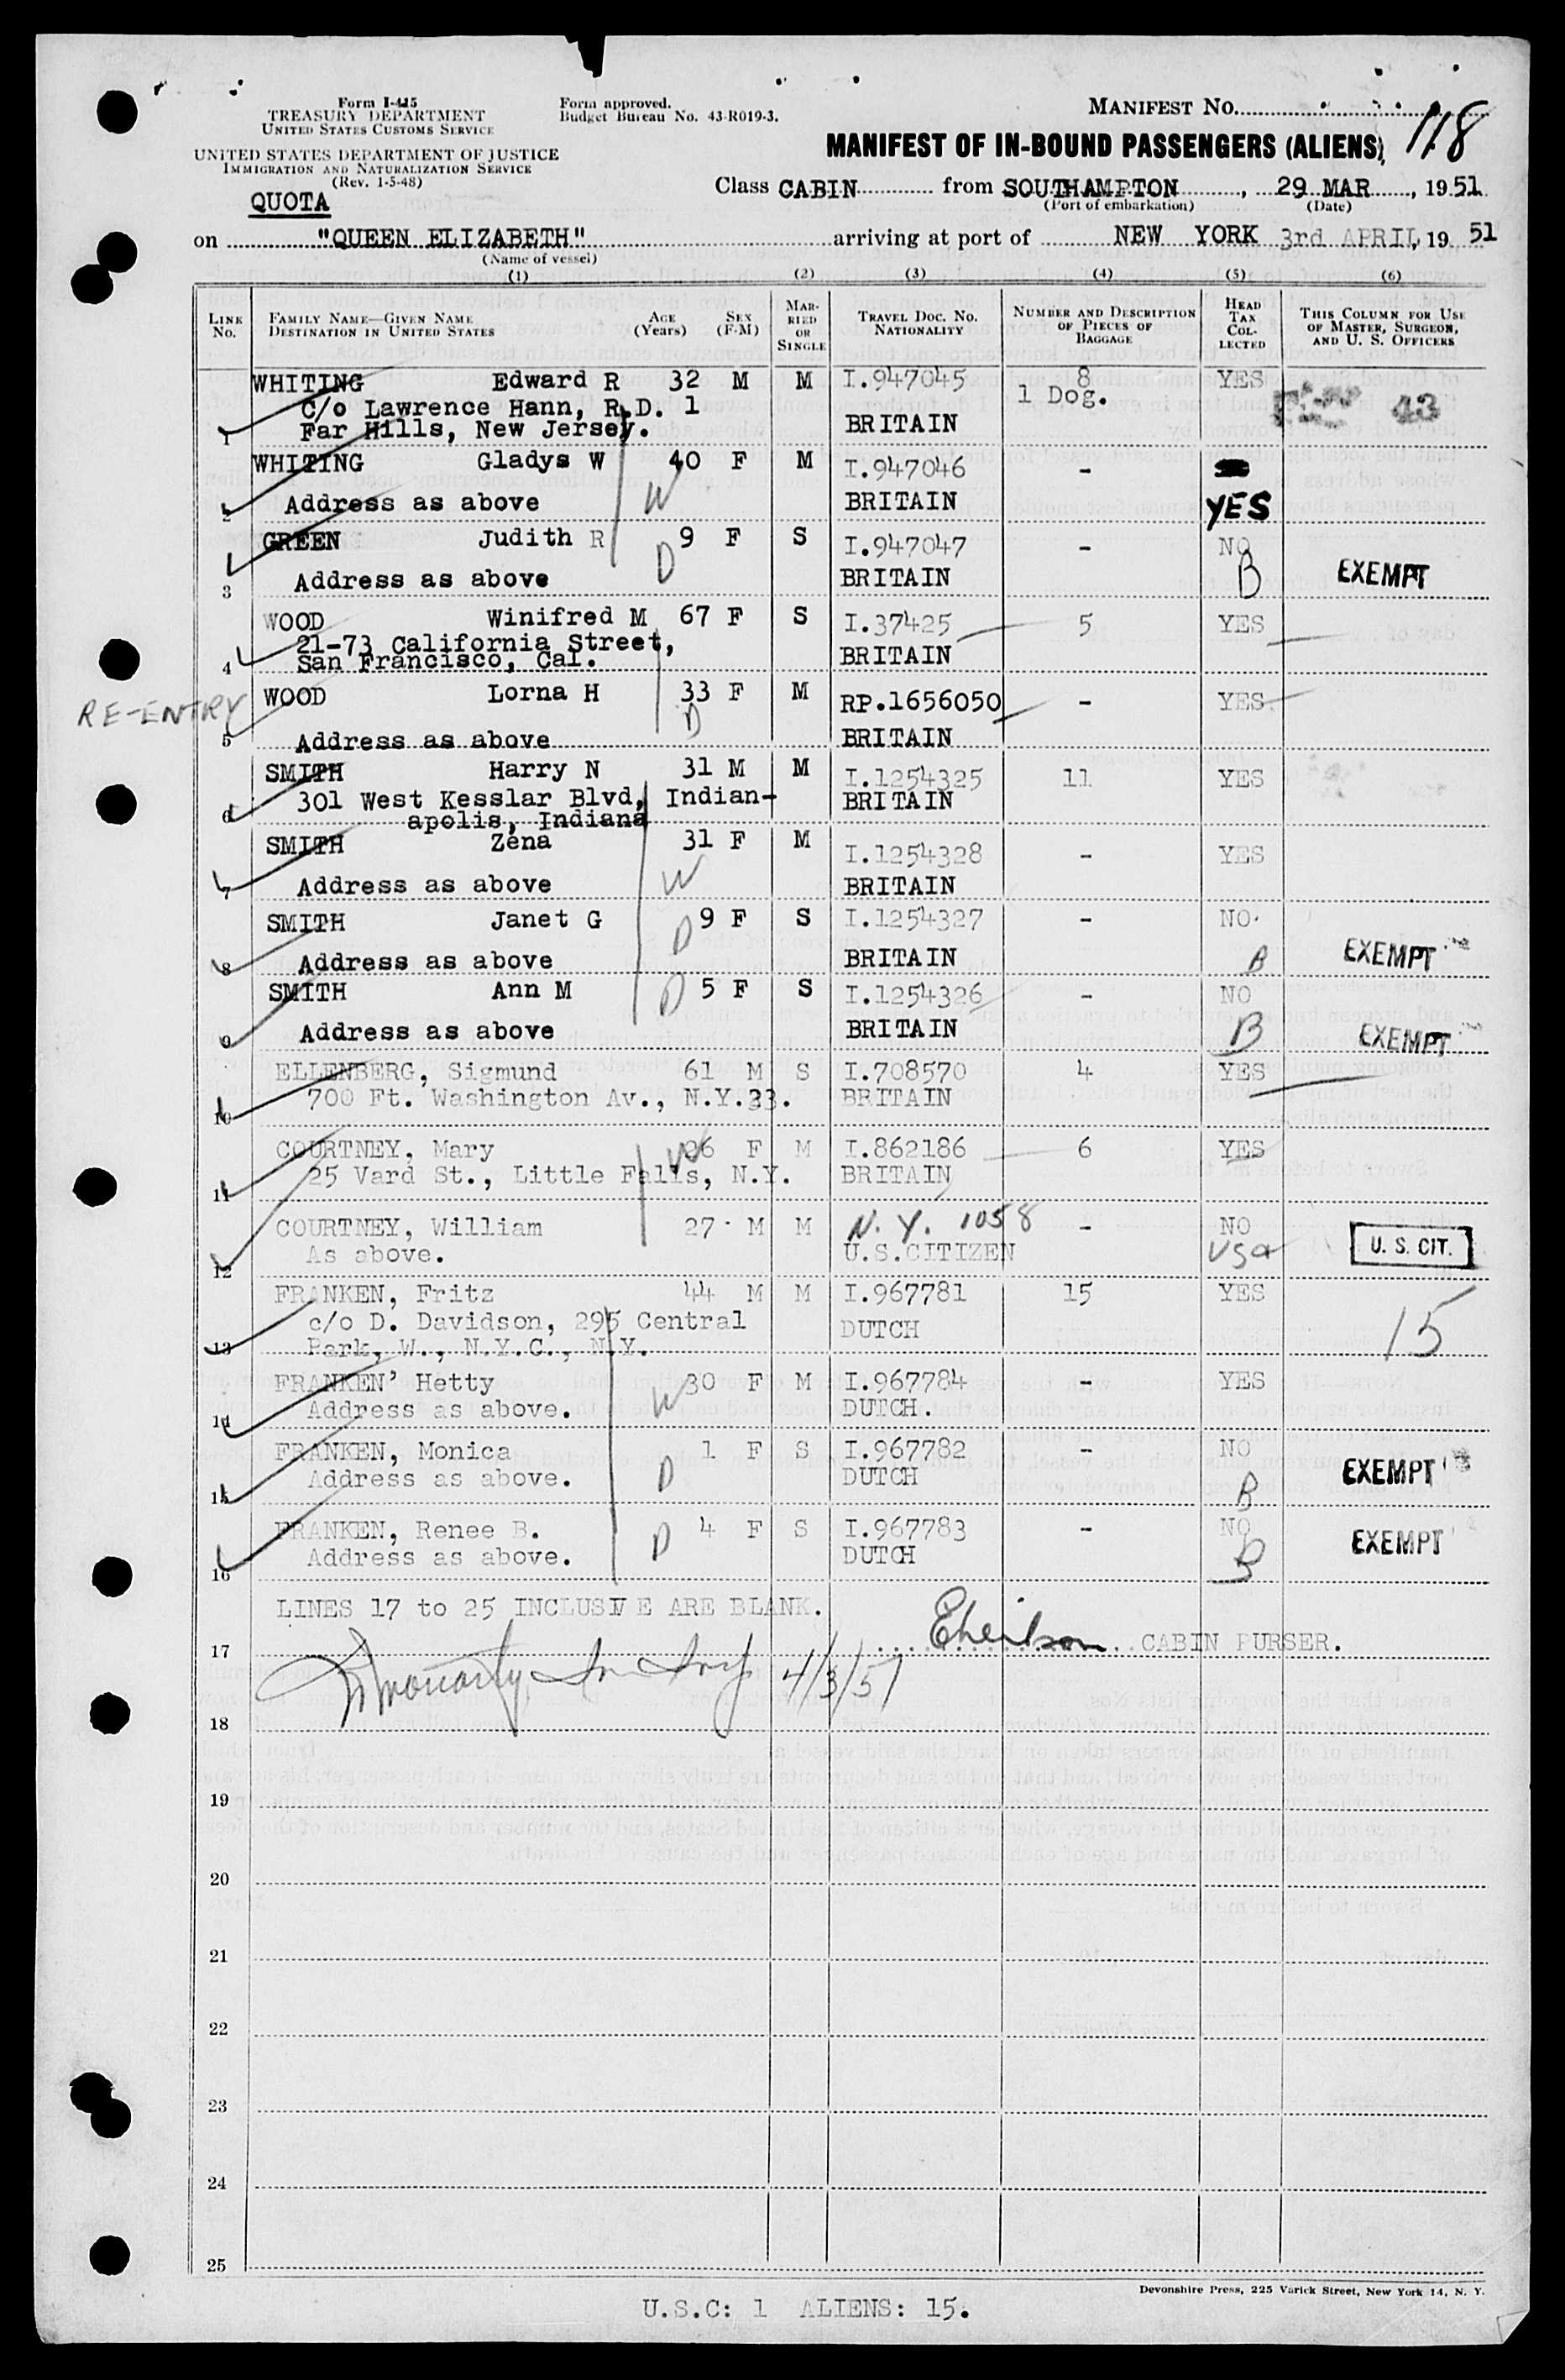 Form I-415
TREASURY DEPARTMENT
UNITED STATES CUSTOMS SERVICE
UNITED STATES DEPARTMENT OF JUSTICE
IMMIGRATION AND NATURALIZATION SERVICE
(Rev. 1-5-48)
Form approved.
Budget Bureau No. 43-R019-3.
MANIFEST No. 118
MANIFEST OF IN-BOUND PASSENGERS (ALIENS)
QUOTA
Class CABIN from SOUTHAMPTON, 29 MAR, 1951
(Port of embarkation) (Date)
on "QUEEN ELIZABETH" arriving at port of NEW YORK 3rd APRIL, 19 51
(Name of vessel)
(1) (2) (3) (4) (5) (6)
LINE No. FAMILY NAME—GIVEN NAME DESTINATION IN UNITED STATES AGE (Years) SEX (F-M) MARRIED OR SINGLE TRAVEL DOC. NO. NATIONALITY NUMBER AND DESCRIPTION OF PIECES OF BAGGAGE HEAD TAX COLLECTED THIS COLUMN FOR USE OF MASTER, SURGEON, AND U. S. OFFICERS
WHITING Edward R 32 M M I.947045 8 YES
C/o Lawrence Hann, R.D. 1 1 Dog. 43
1 Far Hills, New Jersey. BRITAIN
WHITING Gladys W 40 F M I.947046 -
2 Address as above W BRITAIN YES
GREEN Judith R 9 F S I.947047 - NO
3 Address as above D BRITAIN B EXEMPT
WOOD Winifred M 67 F S I.37425 5 YES
21-73 California Street,
4 San Francisco, Cal. BRITAIN
RE-ENTRY WOOD Lorna H 33 F M RP.1656050 - YES
5 Address as above D BRITAIN
SMITH Harry N 31 M M I.1254325 11 YES
6 301 West Kesslar Blvd, Indian- BRITAIN
apolis, Indiana
SMITH Zena 31 F M I.1254328 - YES
7 Address as above W BRITAIN
SMITH Janet G 9 F S I.1254327 - NO
8 Address as above D BRITAIN B EXEMPT
SMITH Ann M D 5 F S I.1254326 - NO
9 Address as above BRITAIN B EXEMPT
ELLENBERG, Sigmund 61 M S I.708570 4 YES
10 700 Ft. Washington Av., N.Y.33. BRITAIN
COURTNEY, Mary W 26 F M I.862186 6 YES
11 25 Vard St., Little Falls, N.Y. BRITAIN
COURTNEY, William 27 M M N.Y. 1058 - NO
12 As above. U.S.CITIZEN USA U. S. CIT.
FRANKEN, Fritz 44 M M I.967781 15 YES
c/o D. Davidson, 295 Central DUTCH 15
13 Park, W., N.Y.C., N.Y.
FRANKEN' Hetty W 30 F M I.967784 - YES
14 Address as above. DUTCH.
FRANKEN, Monica 1 F S I.967782 - NO
15 Address as above. D DUTCH B EXEMPT
FRANKEN, Renee B. 4 F S I.967783 - NO
16 Address as above. D DUTCH B EXEMPT
LINES 17 to 25 INCLUSIVE ARE BLANK.
17 CABIN PURSER.
4/3/51
18
19
20
21
22
23
24
25
Devonshire Press, 225 Varick Street, New York 14, N. Y.
U.S.C: 1 ALIENS: 15.